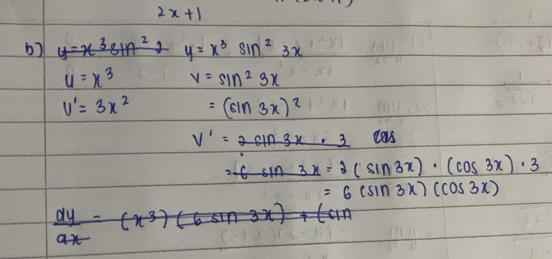 2x+1
b) y=x³sin² 2 y = x³ sin² 3x
u = x³ v = sin² 3x
v' = 3x² = (sin 3x)²
v' = 2 sin 3x · 3 cos
= 6 sin 3x = 2 (sin3x) · (cos 3x) · 3
= 6 (sin 3x) (cos 3x)
dy/ax = (x³) (6 sin 3x) + (sin